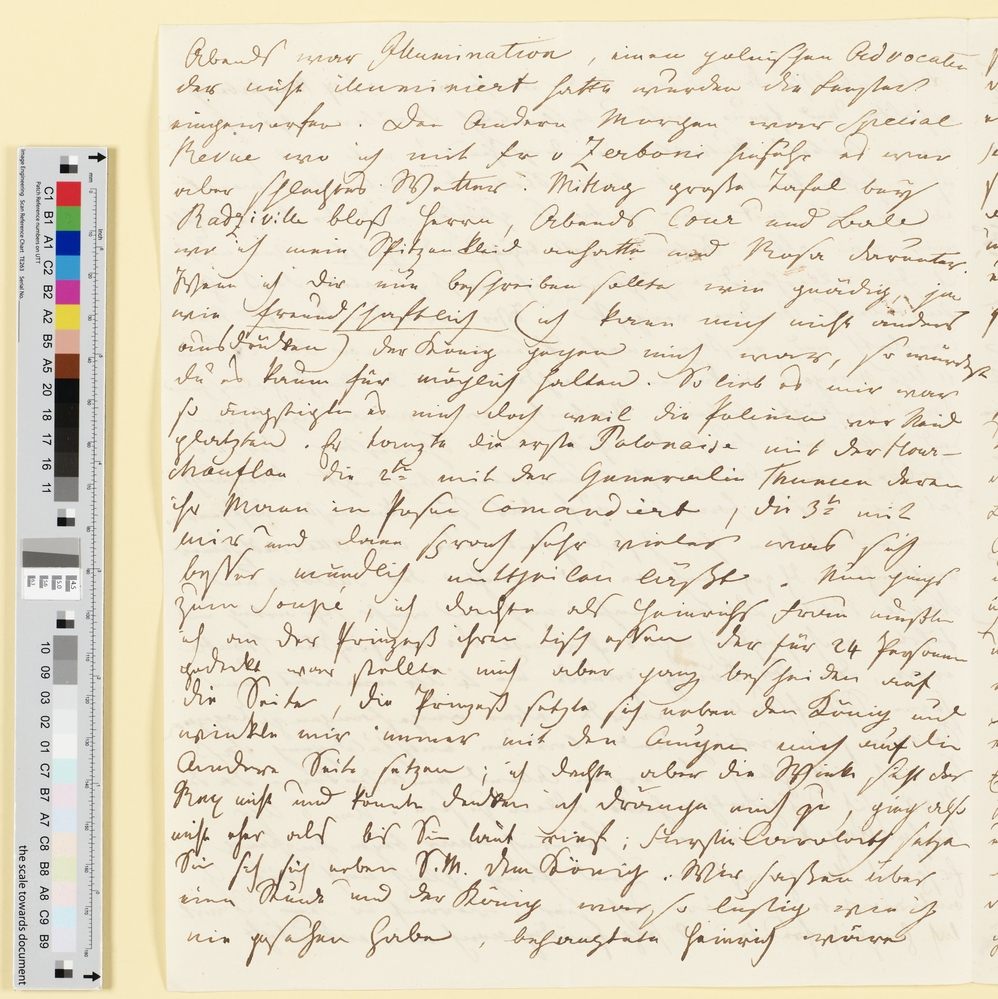 Abends war Illumination, einen polnischen Advocaten
der nicht illuminiert hatte wurden die Fenster
eingeworfen. Den Andern Morgen war Special
Revue wo ich mit Fr v Zerboni hinfuhr es war
aber schlechtes Wetter. Mittag große Tafel bey
Radzivills bloß Herrn, Abends Cour und Bale
wo ich mein Spitzenkleid anhatte und Rosa darunter.
Wenn ich Dir nun beschreiben sollte wie gnädig, ja
wie freundschaftlich (ich kann mich nicht anders
ausdrücken) der König gegen mich war, so würdest
du es kaum für möglich halten. So lieb es mir war
so ängstigte es mich doch weil die Polinnen vor Neid
platzten. Er tanzte die erste Polonaise mit der
die 2te mit der Generalin Thumen deren
ihr Mann in Posen Comandirt, die 3te mit
mir und dann sprach sehr vieles was sich
besser mündlich mittheilen läßt. Nun gings
zum Soupé, ich dachte als Heinrichs Frau müßte
ich an der Prinzeß ihren Tisch essen der für 24 Personen
gedeckt war stellte mich aber ganz bescheiden auf
die Seite, die Prinzeß setzte sich neben den König und
winkte mir immer mit den Augen mich auf die
Andere Seite setzen; ich dachte aber die Winke sieht der
nicht und könnte denken ich dränge mich zu, ging also
nicht eher als bis Sie laut rief; Furstin Carolath setzen
Sie sich neben S.M. dem König. Wir saßen über
eine Stunde und der König war so lustig wie ich
nie gesehen habe, behauptete Heinrich wäre
the scale towards document
Image Engineering Scan Reference Chart TE263 Serial No.
Patch Reference numbers on UTT
C1 B1 A1 C2 B2 A2 B5 A5 20 18 17 16 11
10 09 03 02 01 C7 B7 A7 C8 B8 A8 C9 B9
mm
inch